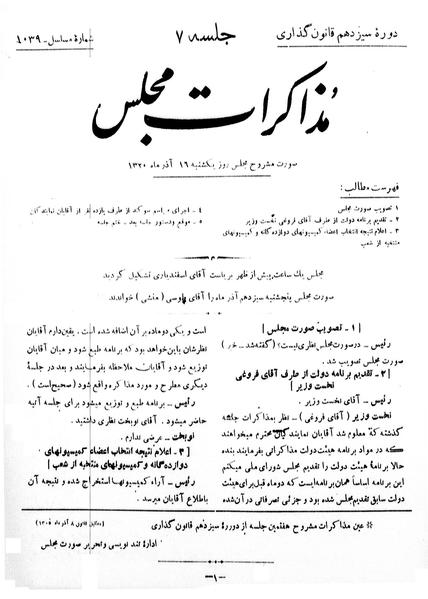 دورهٔ سیزدهم قانون گذاری
جلسه ۷
شمارهٔ مسلسل - ۱۰۳۹
مذاکرات مجلس
صورت مشروح مجلس روز یکشنبه ۱۶ آذر ماه ۱۳۲۰
فهرست مطالب:
۱ تصویب صورت مجلس
۲ - تقدیم برنامه دولت از طرف آقای فروغی نخست وزیر
۳ - اعلام نتیجه انتخاب اعضاء کمیسیونهای دوازده گانه و کمیسیونهای
منتخبه از شعب
۴ - اجرای مراسم سوگند از طرف یازده نفر از آقایان نمایندگان
۵ - موقع و دستور جلسه بعد - ختم جلسه
مجلس یک ساعت پیش از ظهر بریاست آقای اسفندیاری تشکیل گردید
صورت مجلس پنجشنبه سیزدهم آذر ماه را آقای طوسی (منشی) خواندند
[۱ - تصویب صورت مجلس]
رئیس - در صورت مجلس نظری نیست؛ (گفته شد - خیر)
صورت مجلس تصویب شد.
[۲ - تقدیم برنامه دولت از طرف آقای فروغی
نخست وزیر]
رئیس - آقای نخست وزیر.
نخست وزیر (آقای فروغی) - نظر بمذاکرات جلسه
گذشته که معلوم شد آقایان نمایندگان محترم میخواهند
که در مواد برنامه هیئت دولت مذاکراتی بفرمایند بنده
حالا برنامهٔ هیئت دولت را تقدیم مجلس شورای ملی میکنم
این برنامه اساساً همان برنامه ایست که دو ماه قبل برای هیئت
دولت سابق تقدیم مجلس شده بود و جزئی تصرفاتی در آن شده
است و یکی دو ماده بر آن اضافه شده است. یقین دارم آقایان
نظرشان باین خواهد بود که برنامه طبع شود و میان آقایان
توزیع شود و آقایان ملاحظه بفرمایند و بعد در جلسهٔ
دیگری مطرح و مورد مذاکره واقع شود (صحیح است).
رئیس - برنامه طبع و توزیع میشود برای جلسه آتیه
حاضر میشود. آقای نوبخت نظری داشتید.
نوبخت - عرضی ندارم.
[۳ - اعلام نتیجه انتخاب اعضاء کمیسیونهای
دوازده گانه و کمیسیونهای منتخبه از شعب]
رئیس - آراء کمیسیونها استخراج شده و نتیجه آن
باطلاع آقایان میرسد.
* عین مذاکرات مشروح هفتمین جلسه از دورهٔ سیزدهم قانون گذاری
(مطابق قانون ۸ آذر ماه ۱۳۰۵)
ادارهٔ تند نویسی و تحریر صورت مجلس
-۱-